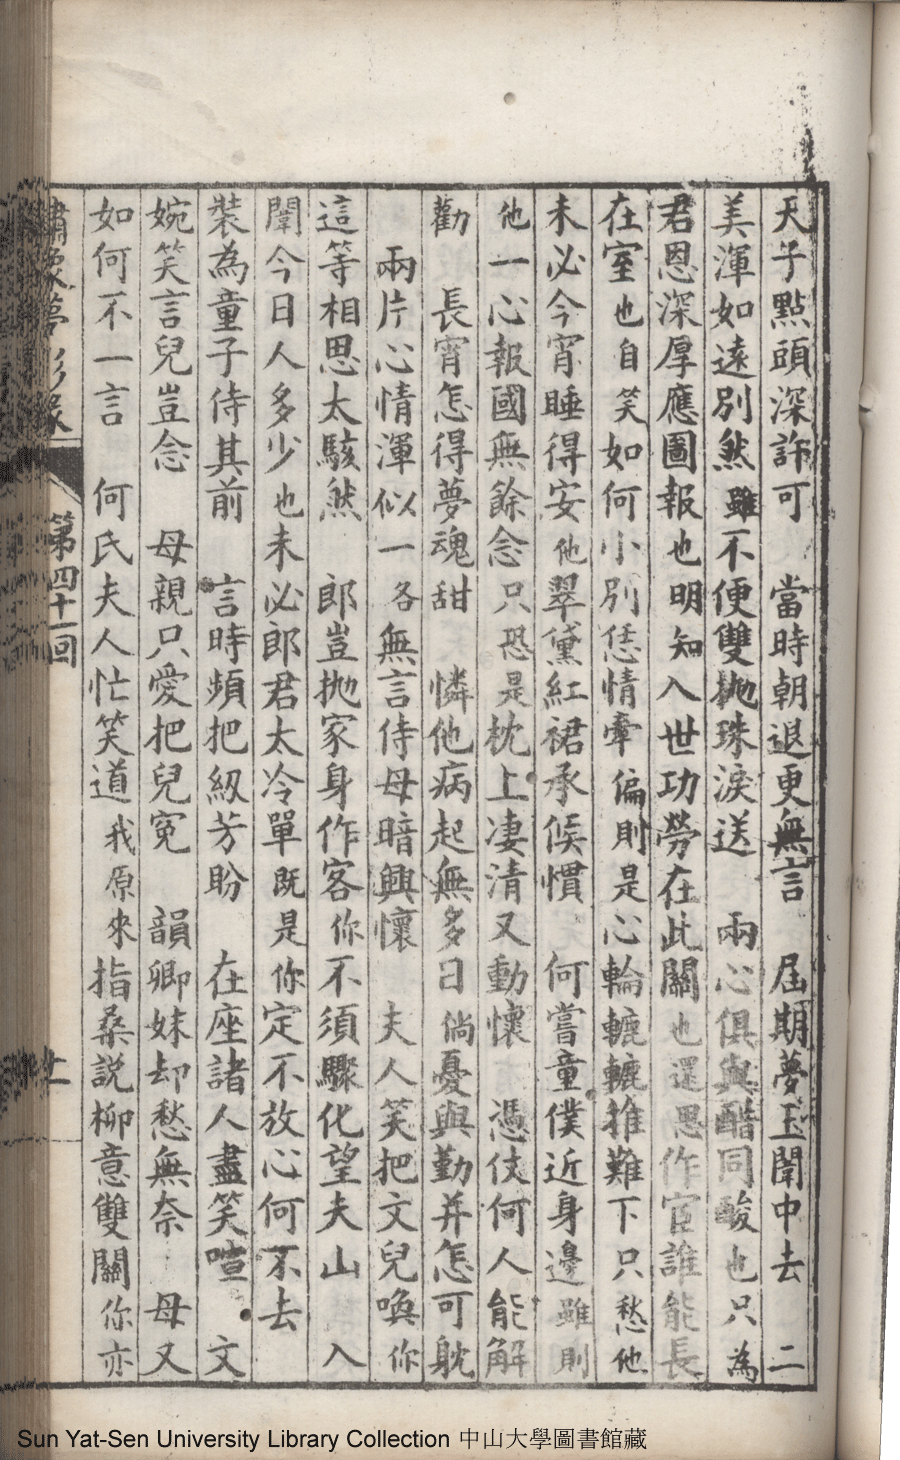 天子點頭深許可　當時朝退更無言　屆期夢玉闈中去　二
美渾如遠別然　雖不便雙拋珠淚送　兩心俱與酷同酸　也只為
君恩深厚應圖報　也明知入世功勞在此關　也還思作官誰能長
在室　也自笑如何小別恁情牽　偏則是心輪轆轆推難下　只愁他
未必今宵睡得安　他翠黛紅裙承候慣　何嘗童僕近身邊　雖則
他一心報國無餘念　只恐是枕上淒清又動懷　憑仗何人能解
勸　長宵怎得夢魂甜　憐他病起無多日　倘憂與勤并怎可躭
兩片心情渾似一　各無言侍母暗興懷　夫人笑把文兒喚　你
這等相思太駭然　郎豈拋家身作客　你不須驟化望夫山　入
闈今日人多少　也未必郎君太冷單　既是你定不放心何不去
裝為童子侍其前　言時頻把級芳盼　在座諸人盡笑喧　文
婉笑言兒豈念　母親只愛把兒冤　韻卿妹却愁無奈　母又
如何不一言　何氏夫人忙笑道　我原來指桑説柳意雙關　你亦
繡像夢影緣　第四十一回
Sun Yat-Sen University Library Collection 中山大學圖書館藏